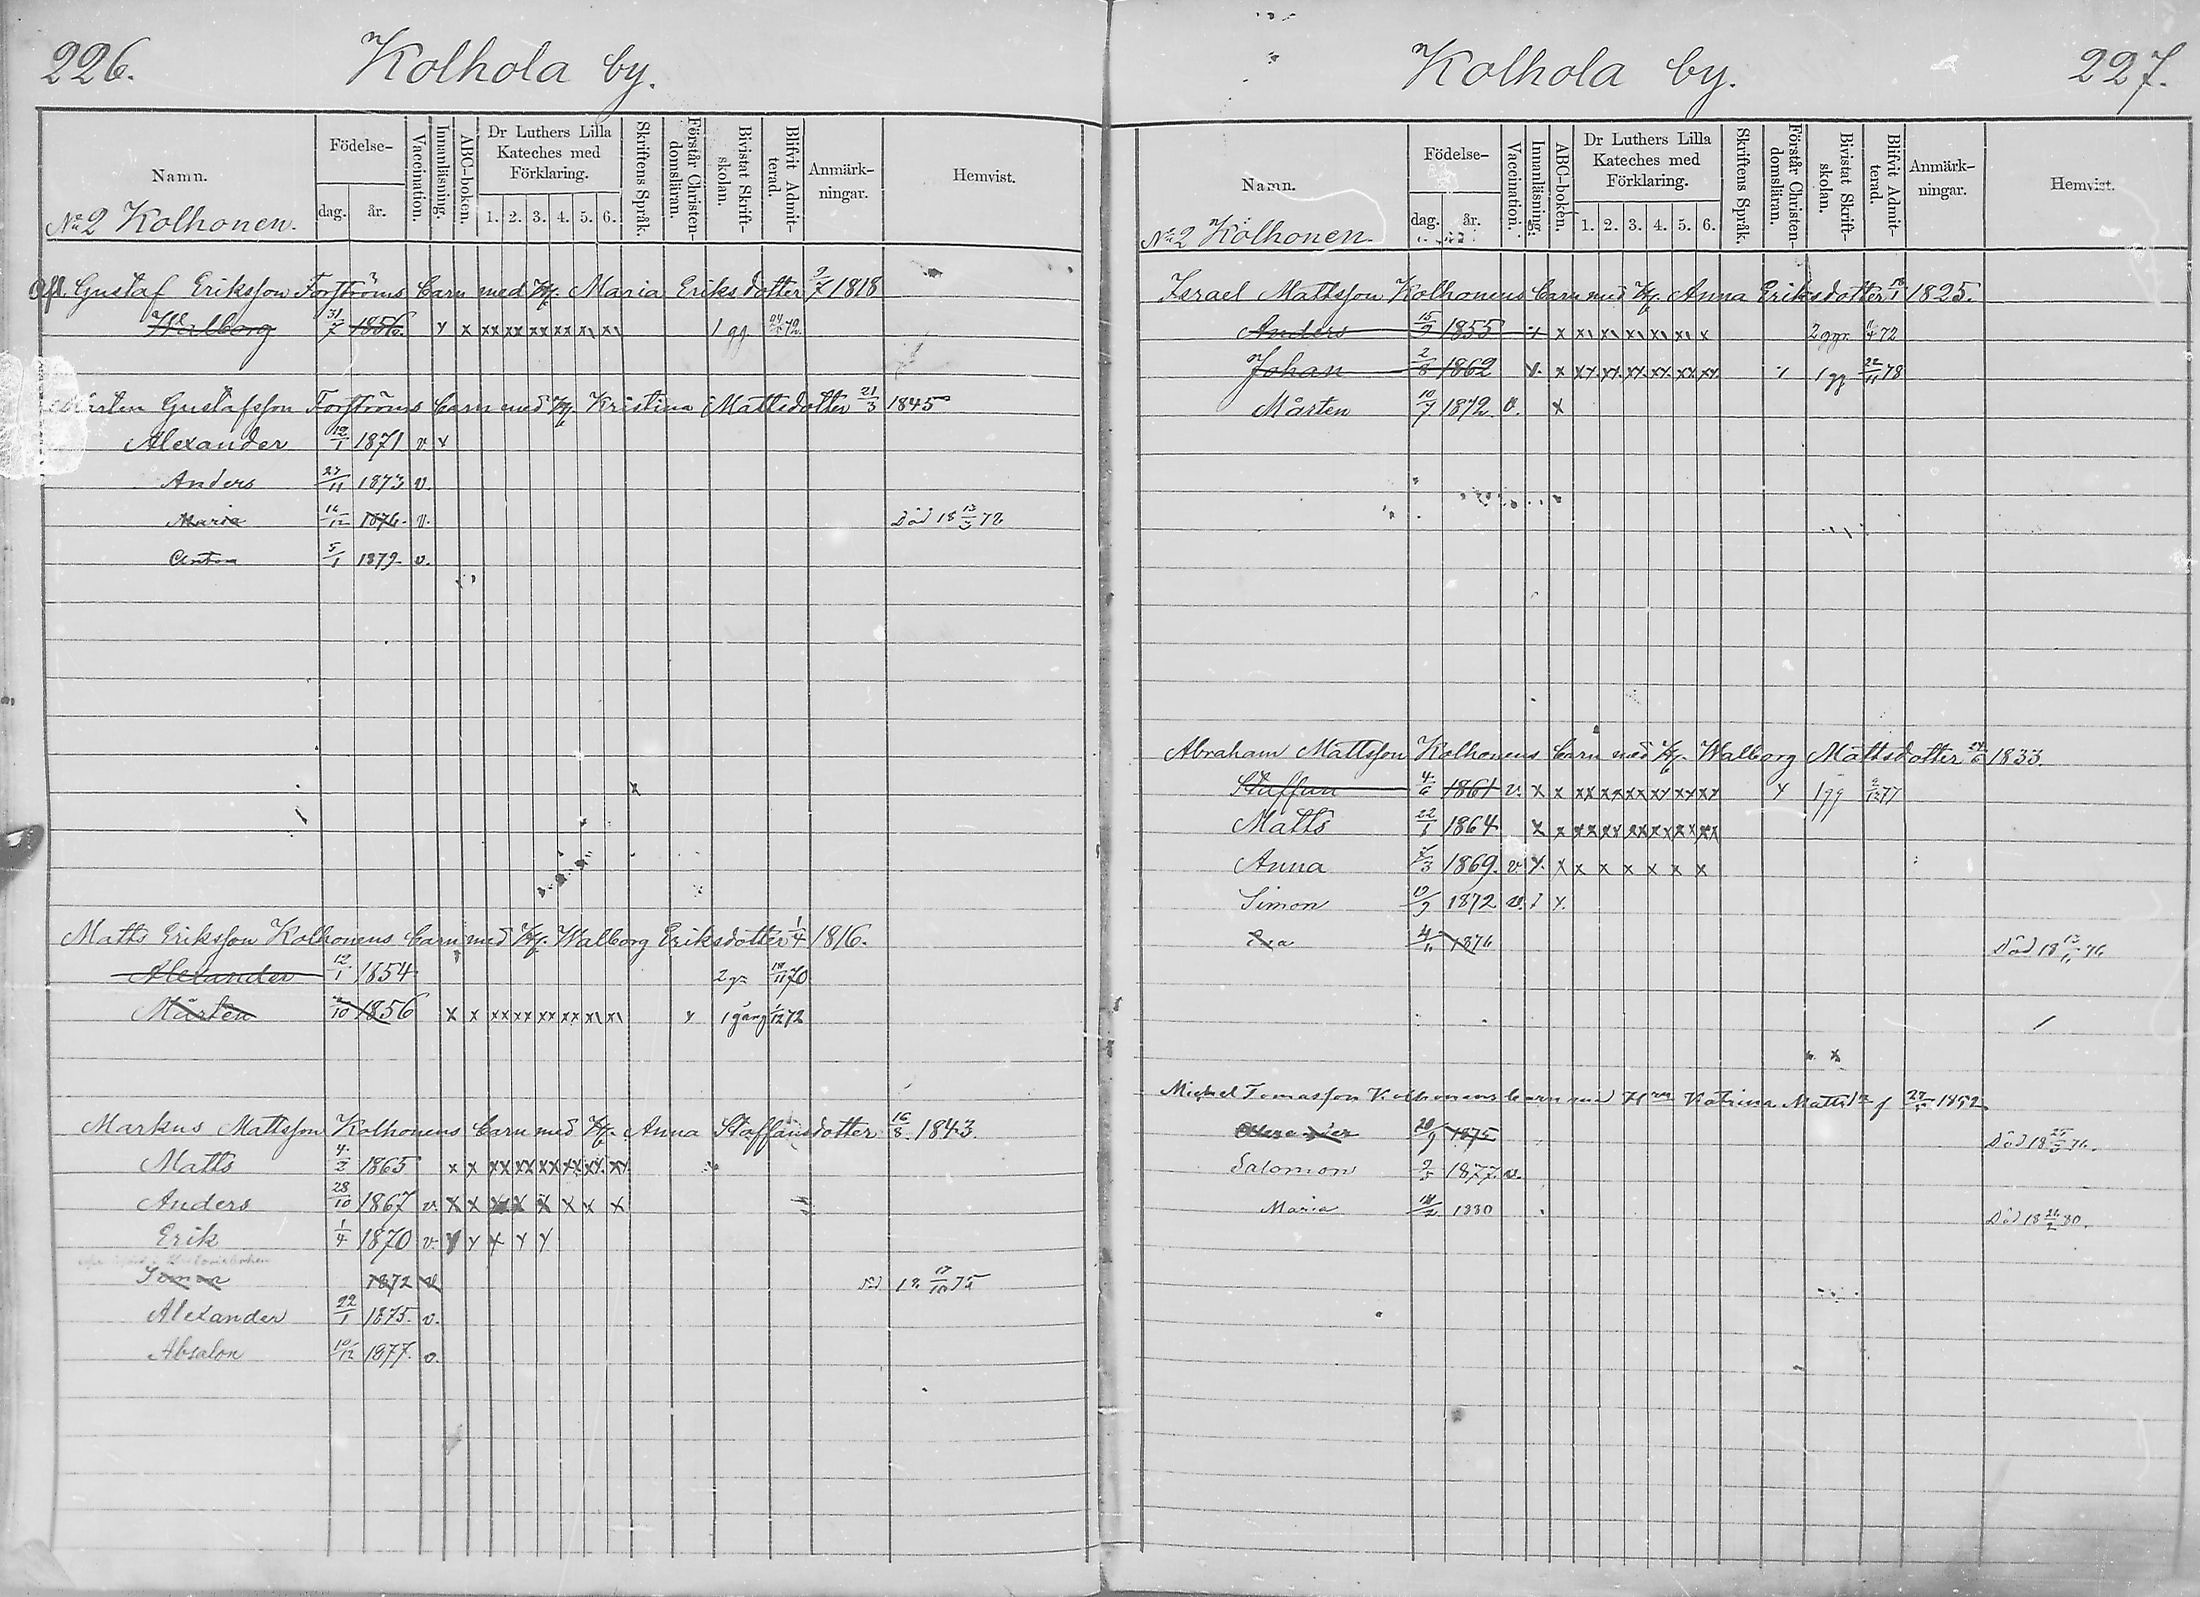 226. Kolhola by.
Namn. Födelse- Vaccination. Innanläsning. ABC-boken. Dr Luthers Lilla Kateches med Förklaring. Skriftens Språk. Förstår Christen-domsläran. Bivistat Skrift-skolan. Blifvit Admit-terad. Anmärk-ningar. Hemvist.
dag. år. 1. 2. 3. 4. 5. 6.
No 2 Kolhonen.
Afl. Gustaf Eriksson Forströms barn med H. Maria Eriksdotter 9/7 1818
Walborg 31/7 1856. x x xx xx xx xx x\ x\ 1 gg 72.
Mårten Gustafsson Forströms barn med H. Kristina Mattsdotter 21/3 1845
Alexander 12/1 1871 v. x
Anders 27/11 1873 v.
Maria 16/12 1876. v. Död 18 13/3 78
Anton 5/1 1879. v.
Matts Eriksson Kolhonens barn med H. Walborg Eriksdotter 1/4 1816.
Alexander 12/1 1854 2 gr 70
Mårten /10 1856 x x xx xx xx xx x\ x\ x 1 gång 1/12 72
Markus Mattsson Kolhonens barn med H. Anna Staffansdotter 16/8 1843.
Matts 4/2 1865 x x xx xx xx xx xx xx
Anders 28/10 1867 v. x x x x x x x x
Erik 1/4 1870 v. x x x x x
Simon 1872 v död 18 17/10 75
Alexander 22/1 1875. v.
Absalon 10/12 1877. v.
Kolhola by. 227.
Namn. Födelse- Vaccination. Innanläsning. ABC-boken. Dr Luthers Lilla Kateches med Förklaring. Skriftens Språk. Förstår Christen-domsläran. Bivistat Skrift-skolan. Blifvit Admit-terad. Anmärk-ningar. Hemvist.
dag. år. 1. 2. 3. 4. 5. 6.
No 2 Kolhonen.
Israel Mattsson Kolhonens barn med H. Anna Eriksdotter 1825.
Anders 15/9 1855 x x x\ x\ x\ x\ x\ x 2 ggr. 11/4 72
Johan 2/8 1862 v. x xx. xx. xx. xx. xx xx. x 1 gg 22/11 78
Mårten 10/7 1872 v. x
Abraham Mattsson Kolhonens barn med H. Walborg Mattsdotter 24/6 1833.
Staffan 4/6 1861 v. x x xx xx xx xx xx xx x 1 gg 77
Matts 22/1 1864 x x xx xx xx xx xx xx
Anna 7/3 1869. v. x. x x x x x x x
Simon 19/9 1872 v. 1 x.
Eva 4/11 1876 Död 18 13/11 76
Michel Tomasson Kolhonens barn med Hrun Katrina Mattsdr f 27/5 1852
Alexander 20/9 1875 Död 18 25/3 76.
Salomon 2/5 1877. v.
Maria 1880 Död 18 26/2 80.